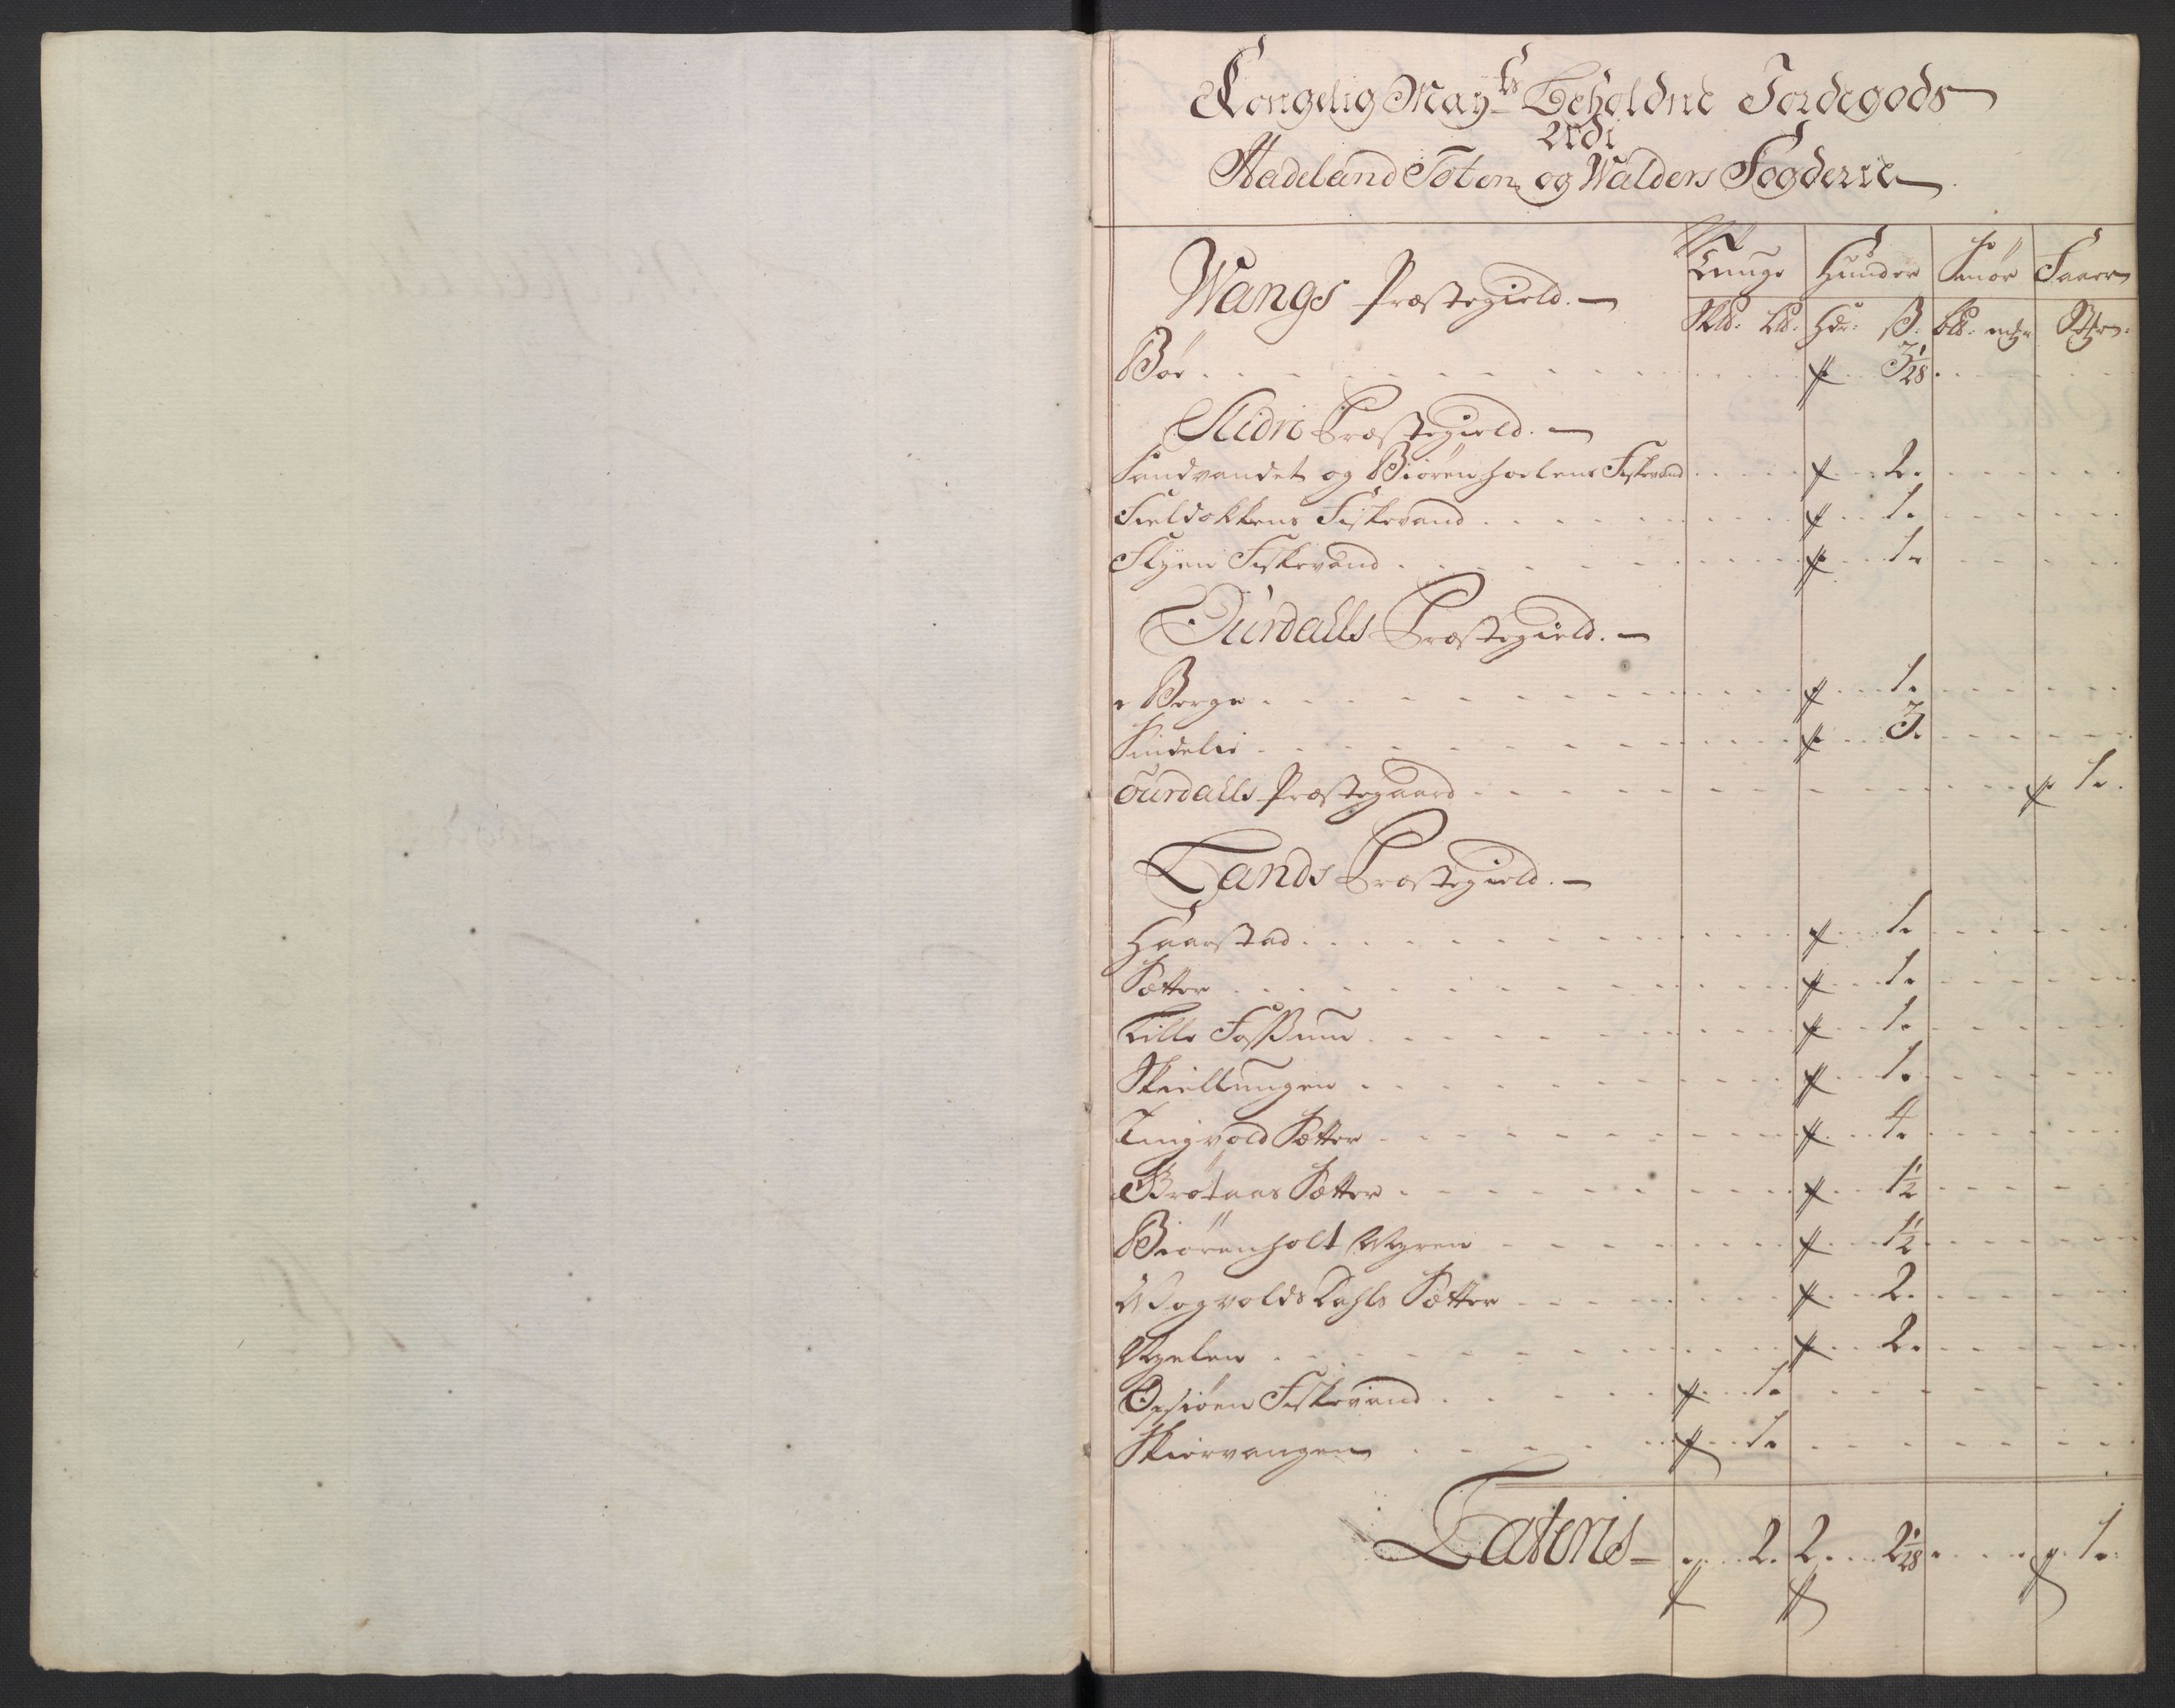 Kongelig May.ts Beholdne Jordegods
Udi
Hadeland Toten og Walders Fogderie
Tunge Hunder Smør Faaer
Wangs Præstegield.
Skd: Ld: Hdr: ß: bd: mk
Bøe 3 1/28
Slidre Præstegield.
Sandvandet og Biørenholens Fiskevand 2.
Fieldokkens Fiskevand 1.
Flyen Fiskevand 1.
Ourdalls Præstegield.
Berge 1.
Lindelie 3.
Ourdalls Præstegaard 1.
Lands Præstegield.
Haarstad 1.
Sætter 1.
Lille Fossum 1.
Skiellungen 1.
Tingvold Sætter 4.
Brøtaas Sætter 1 1/2
Biørenholt Myren 1 1/2
Dahls Sætter 2.
2.
Opsiøen Fiskevand 1.
Skiervangen 1.
Lateris 2. 2. 2 1/28 1.